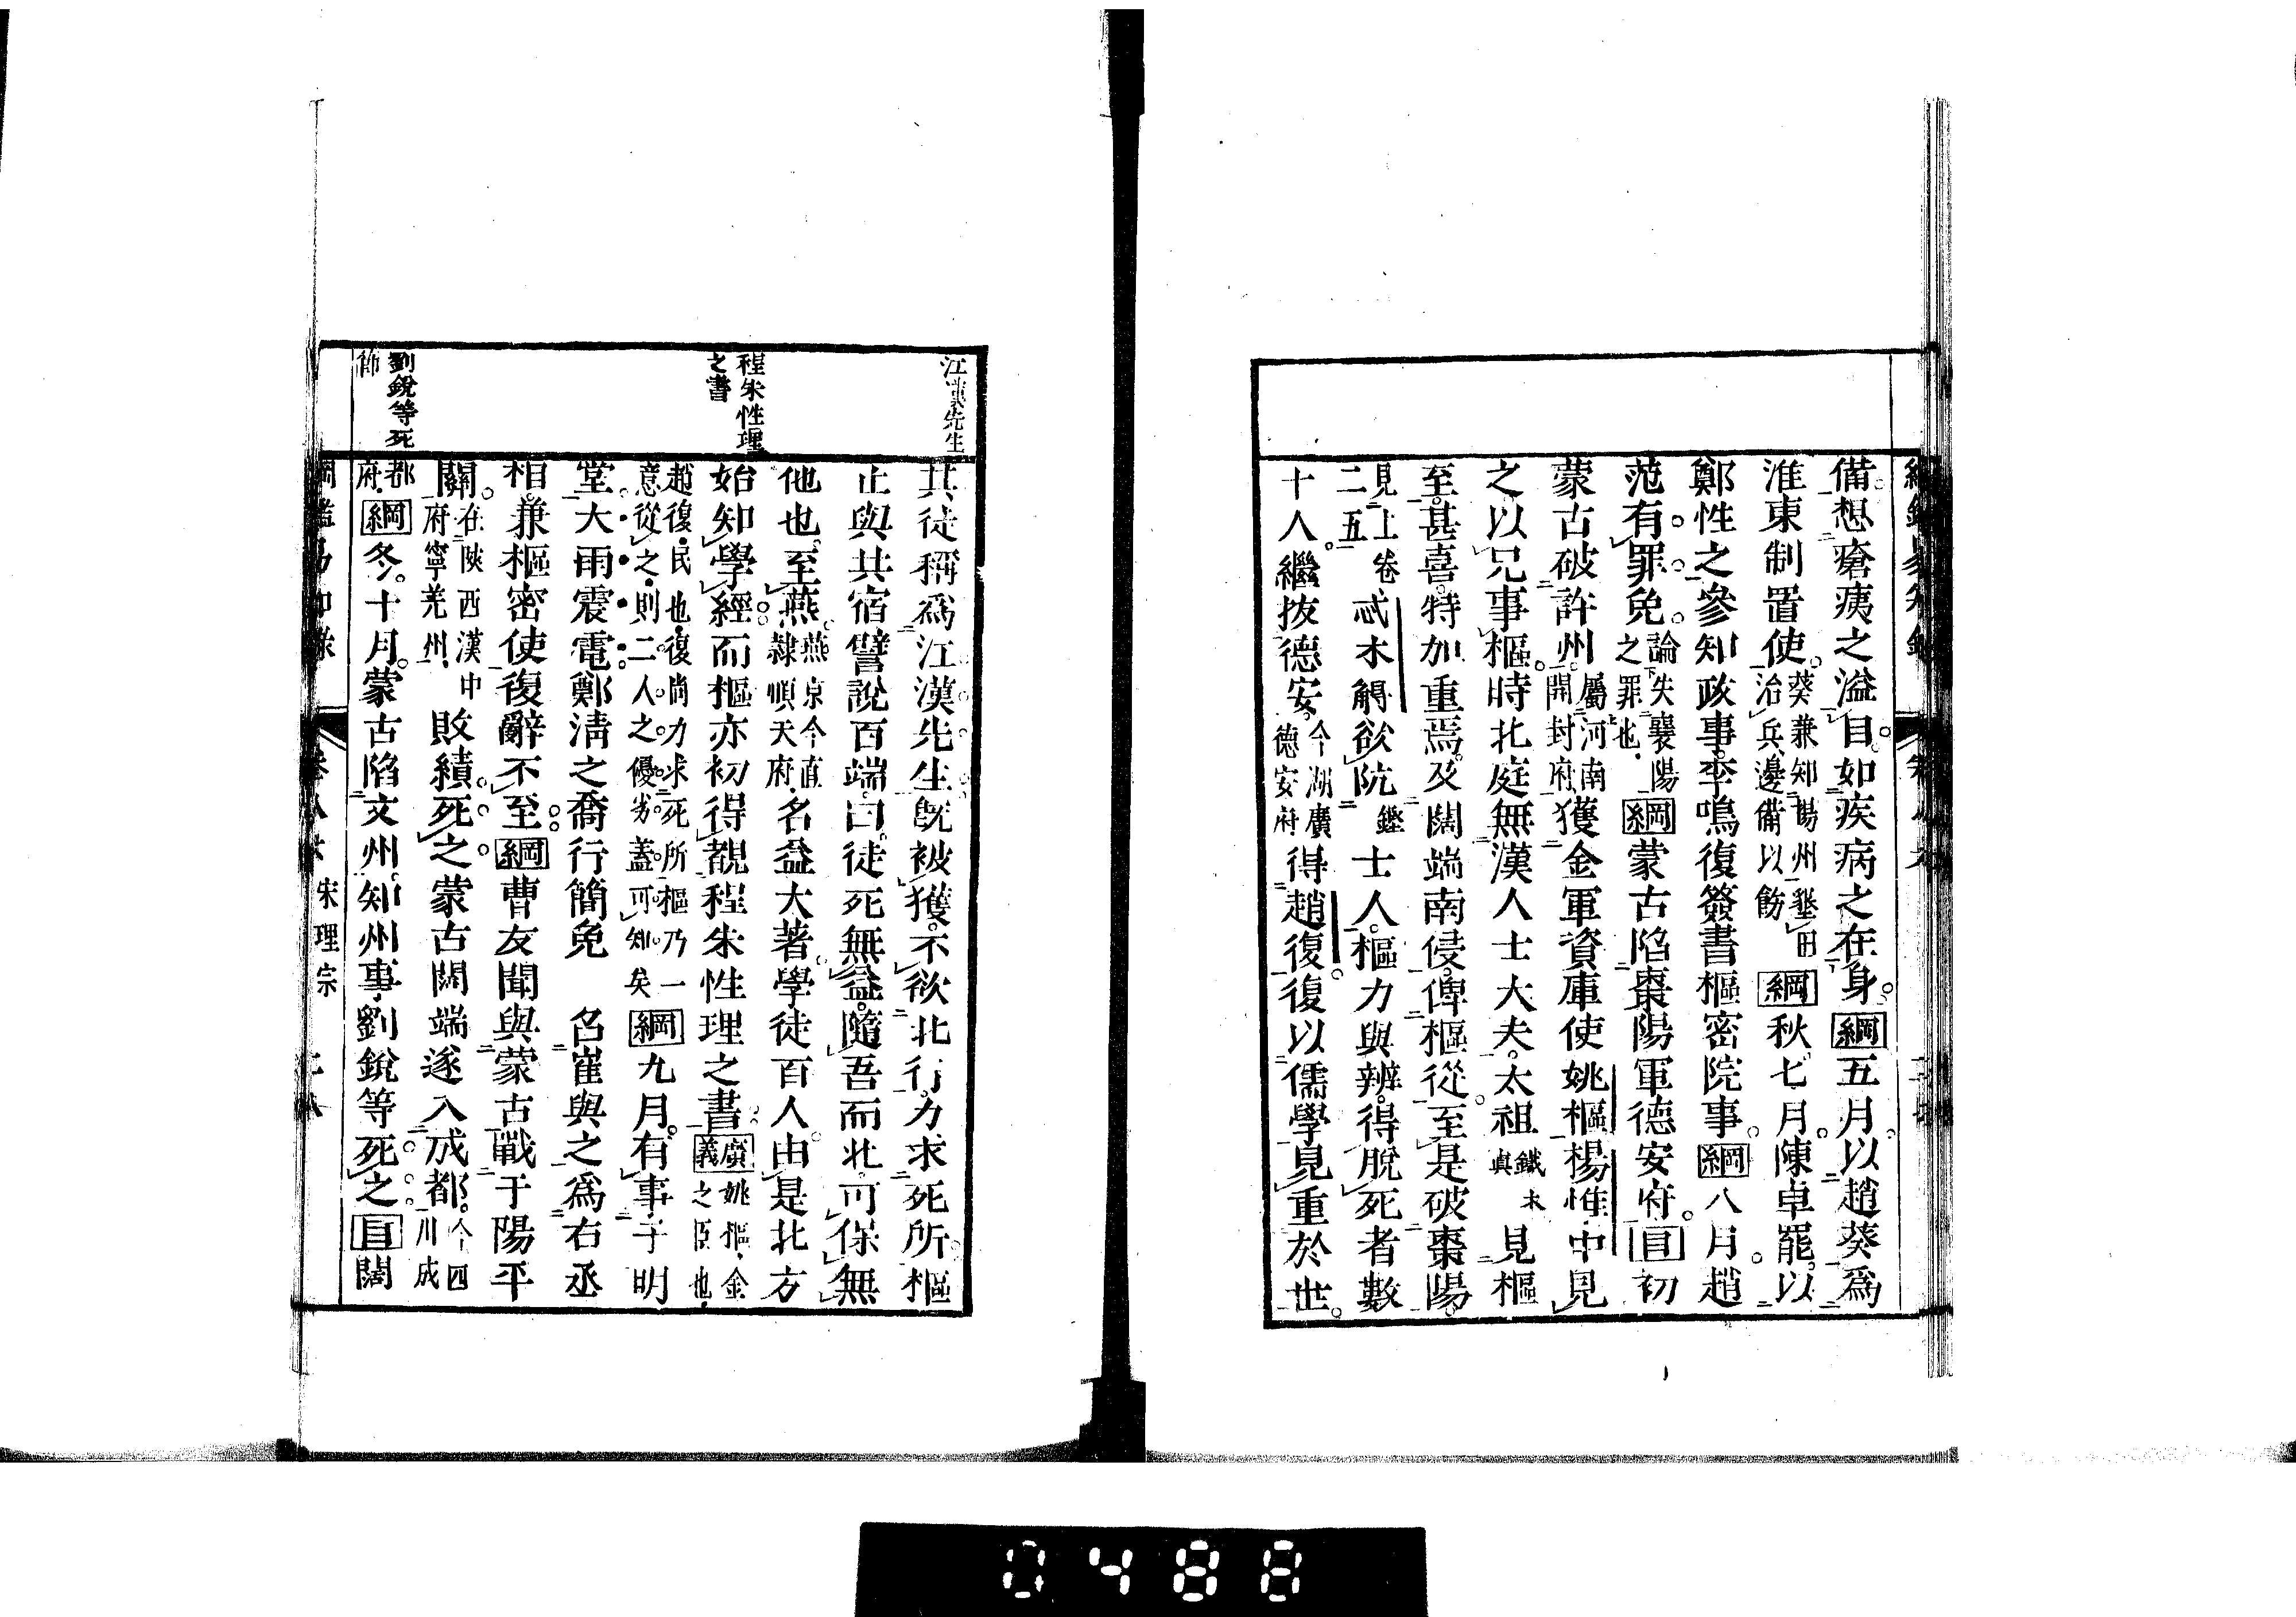 備想瘡痍之溢目如疾病之在身綱五月以趙葵爲
淮東制置使葵兼知揚州墾田治兵邊備以飭綱秋七月陳卓罷以
鄭性之參知政事李鳴復簽書樞密院事綱八月趙
范有罪免論失襄陽之罪也綱蒙古陷棗陽軍德安府目初
蒙古破許州屬河南開封府獲金軍資庫使姚樞楊惟中見
之以兄事樞時北庭無漢人士大夫太祖鐵木真見樞
至甚喜特加重焉及闊端南侵俾樞從至是破棗陽
見上卷二五忒木䚟欲阬士人樞力與辨得脫死者數
十人繼拔德安今湖廣德安府得趙復復以儒學見重於世
江漢先生
其徒稱爲江漢先生旣被獲不欲北行力求死所樞
止與共宿譬說百端曰徒死無益隨吾而北可保無
他也至燕燕京今直隸順天府名益大著學徒百人由是北方
程朱性理之書
始知學經而樞亦初得覩程朱性理之書廣義姚樞金之臣也
趙復民也復尚力求死所樞乃一意從之則二人之優劣蓋可知矣綱九月有事于明
堂大雨震電鄭淸之喬行簡免 召崔與之爲右丞
相兼樞密使復辭不至綱曹友聞與蒙古戰于陽平
關在陝西漢中府寧羌州敗績死之蒙古闊端遂入成都今四川成
劉銳等死節
都府綱冬十月蒙古陷文州知州事劉銳等死之目闊
宋理宗
0488